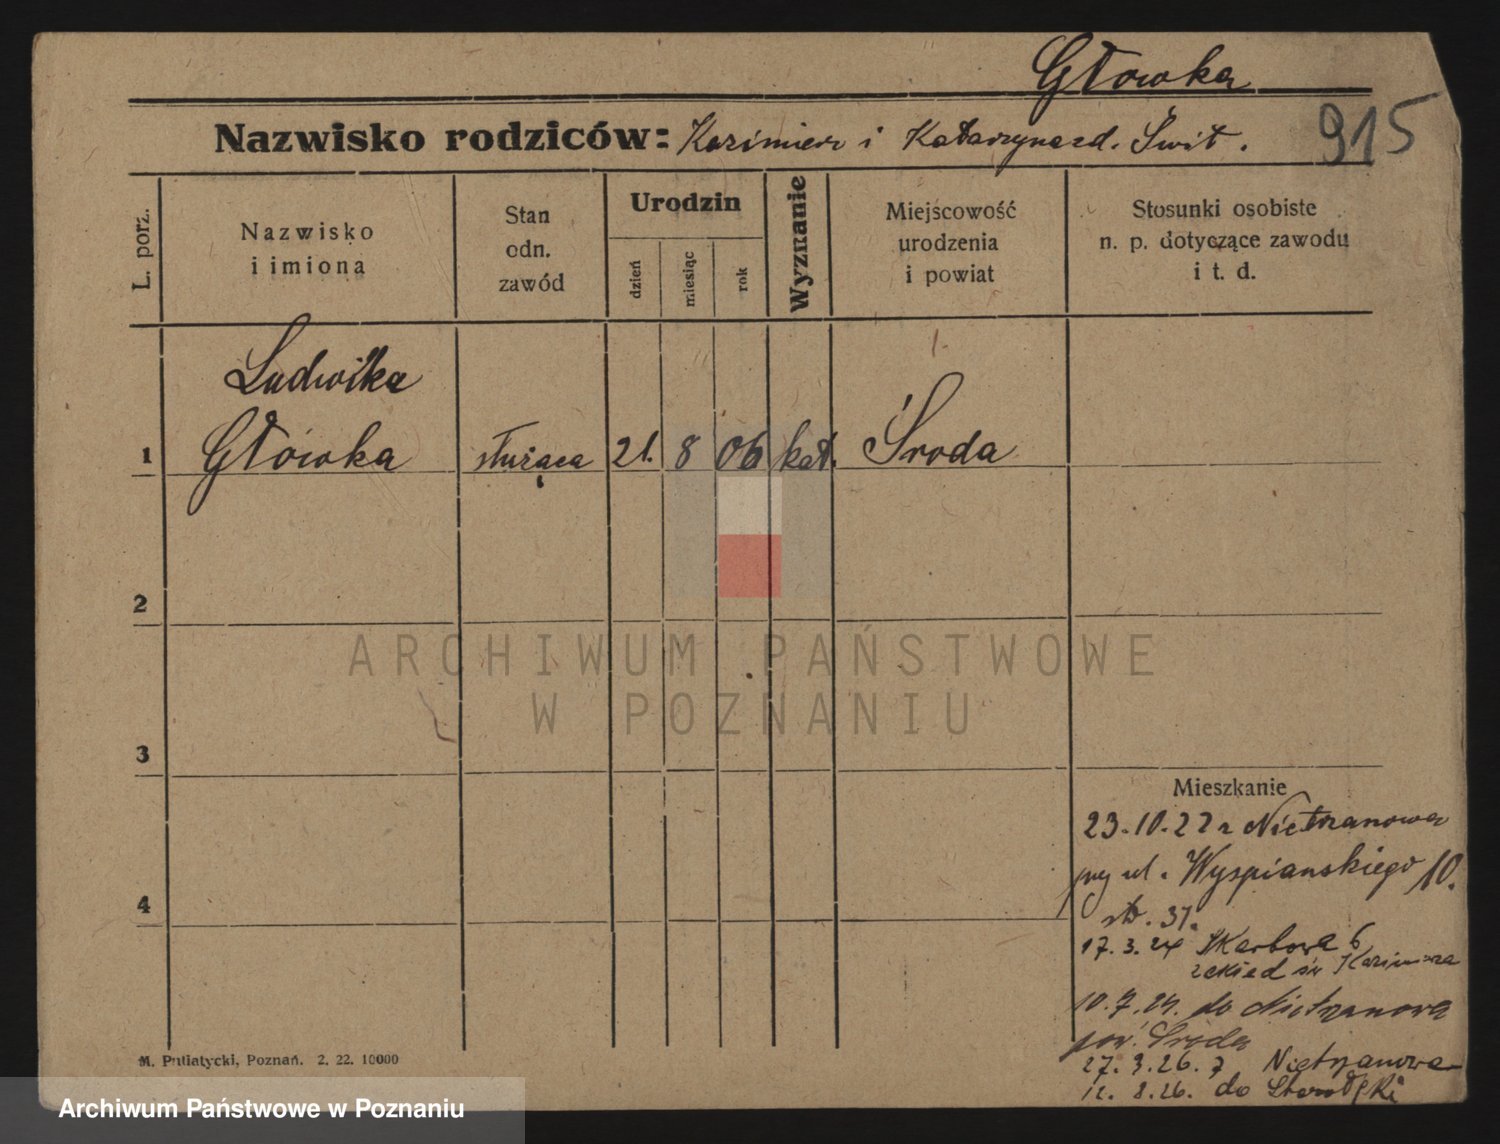 Główka
915
Nazwisko rodziców: Kazimierz i Katarzyna zd. Świt.
L. porz.
Nazwisko
i imiona
Stan
odn.
zawód
Urodzin
dzień
miesiąc
rok
Wyznanie
Miejscowość
urodzenia
i powiat
Stosunki osobiste
n. p. dotyczące zawodu
i t. d.
Ludwika
1 Główka służąca 21. 8 06 kat. Środa
2
3
4
Mieszkanie
23.10.22 z Nietrzanowa
ul. Wyspianskiego 10.
31.
17.3.24 Skarbowa 6
św Kazimierza
10.7.24. do Nietrzanowa
pow. Środa
27.3.26. z Nietrzanowa
12. 8.26. do Starołęki
M. Putiatycki, Poznań. 2. 22. 10000
ARCHIWUM PAŃSTWOWE
W POZNANIU
Archiwum Państwowe w Poznaniu